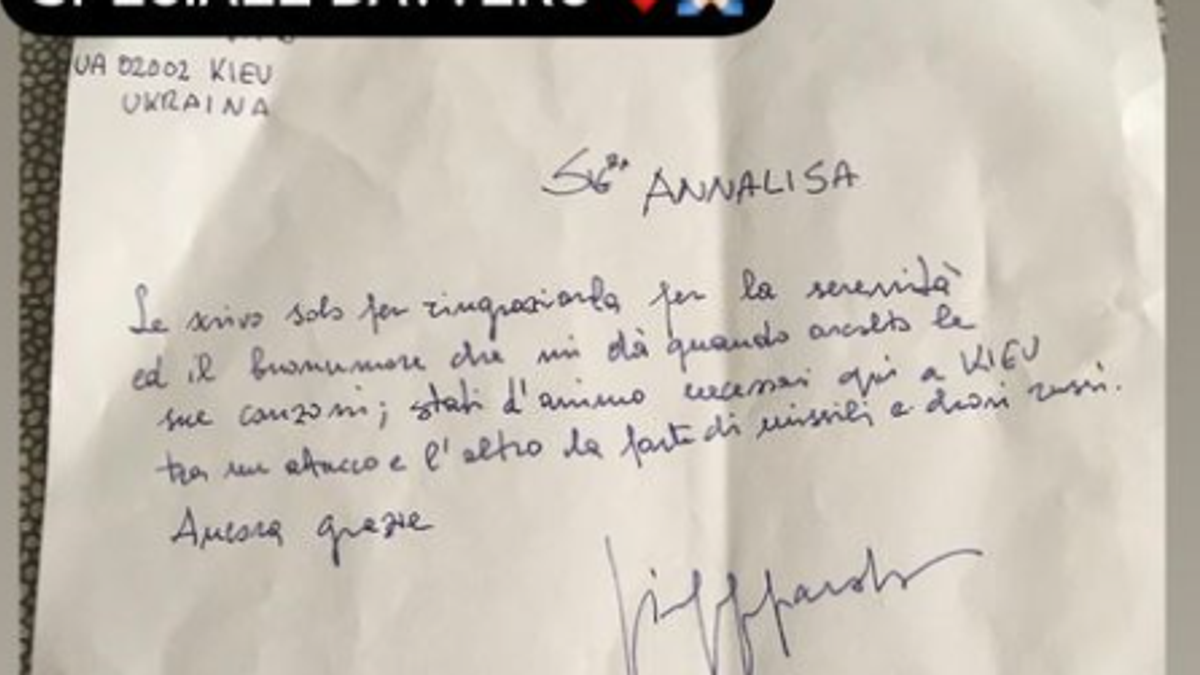 SPECIALE DAVVERO
UA 02002 KIEV
UKRAINA
SIG.RA ANNALISA
Le scrivo solo per ringraziarla per la serenità
ed il buonumore che mi dà quando ascolto le
sue canzoni; stati d'animo necessari qui a KIEV
tra un attacco e l'altro da parte di missili e droni russi.
Ancora grazie